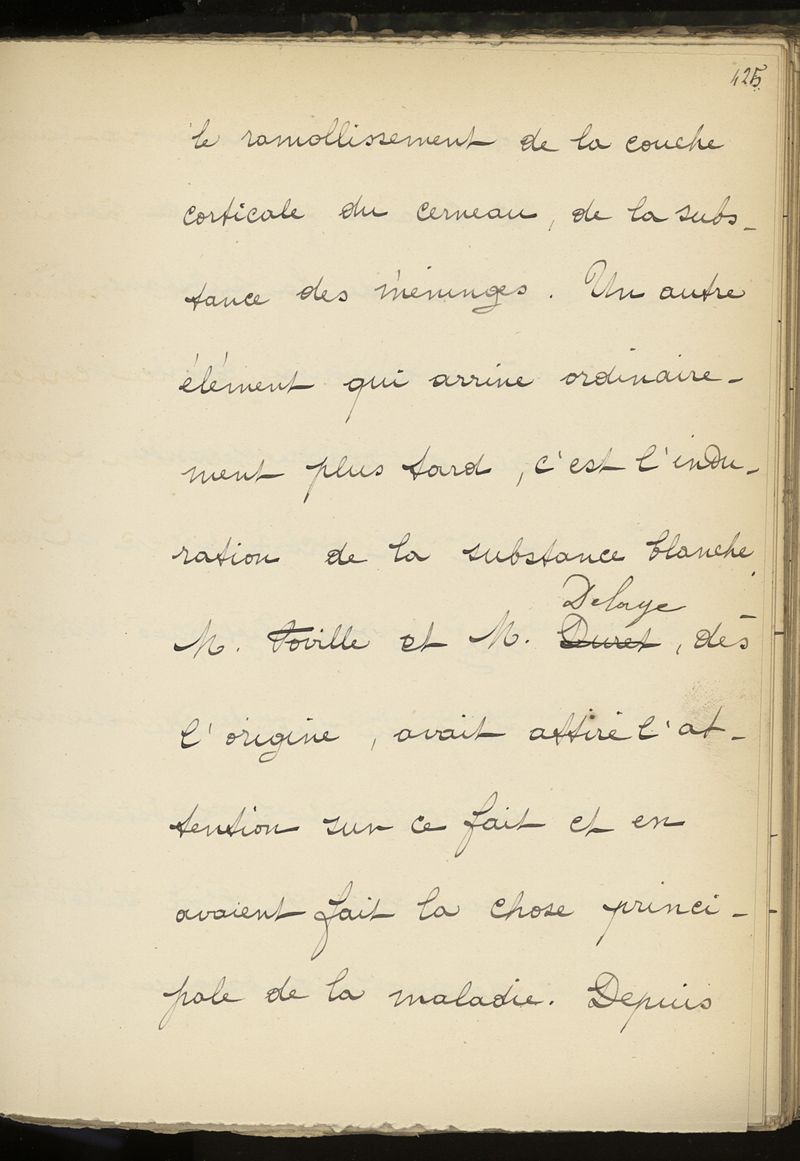 425
le ramollissement de la couche
corticale du cerveau, de la subs-
tance des méninges. Un autre
élément qui arrive ordinaire-
ment plus tard, c'est l'indu-
ration de la substance blanche.
Delaye
M. Foville et M. Duret, dès
l'origine, avait attiré l'at-
tention sur ce fait et en
avaient fait la chose princi-
pale de la maladie. Depuis